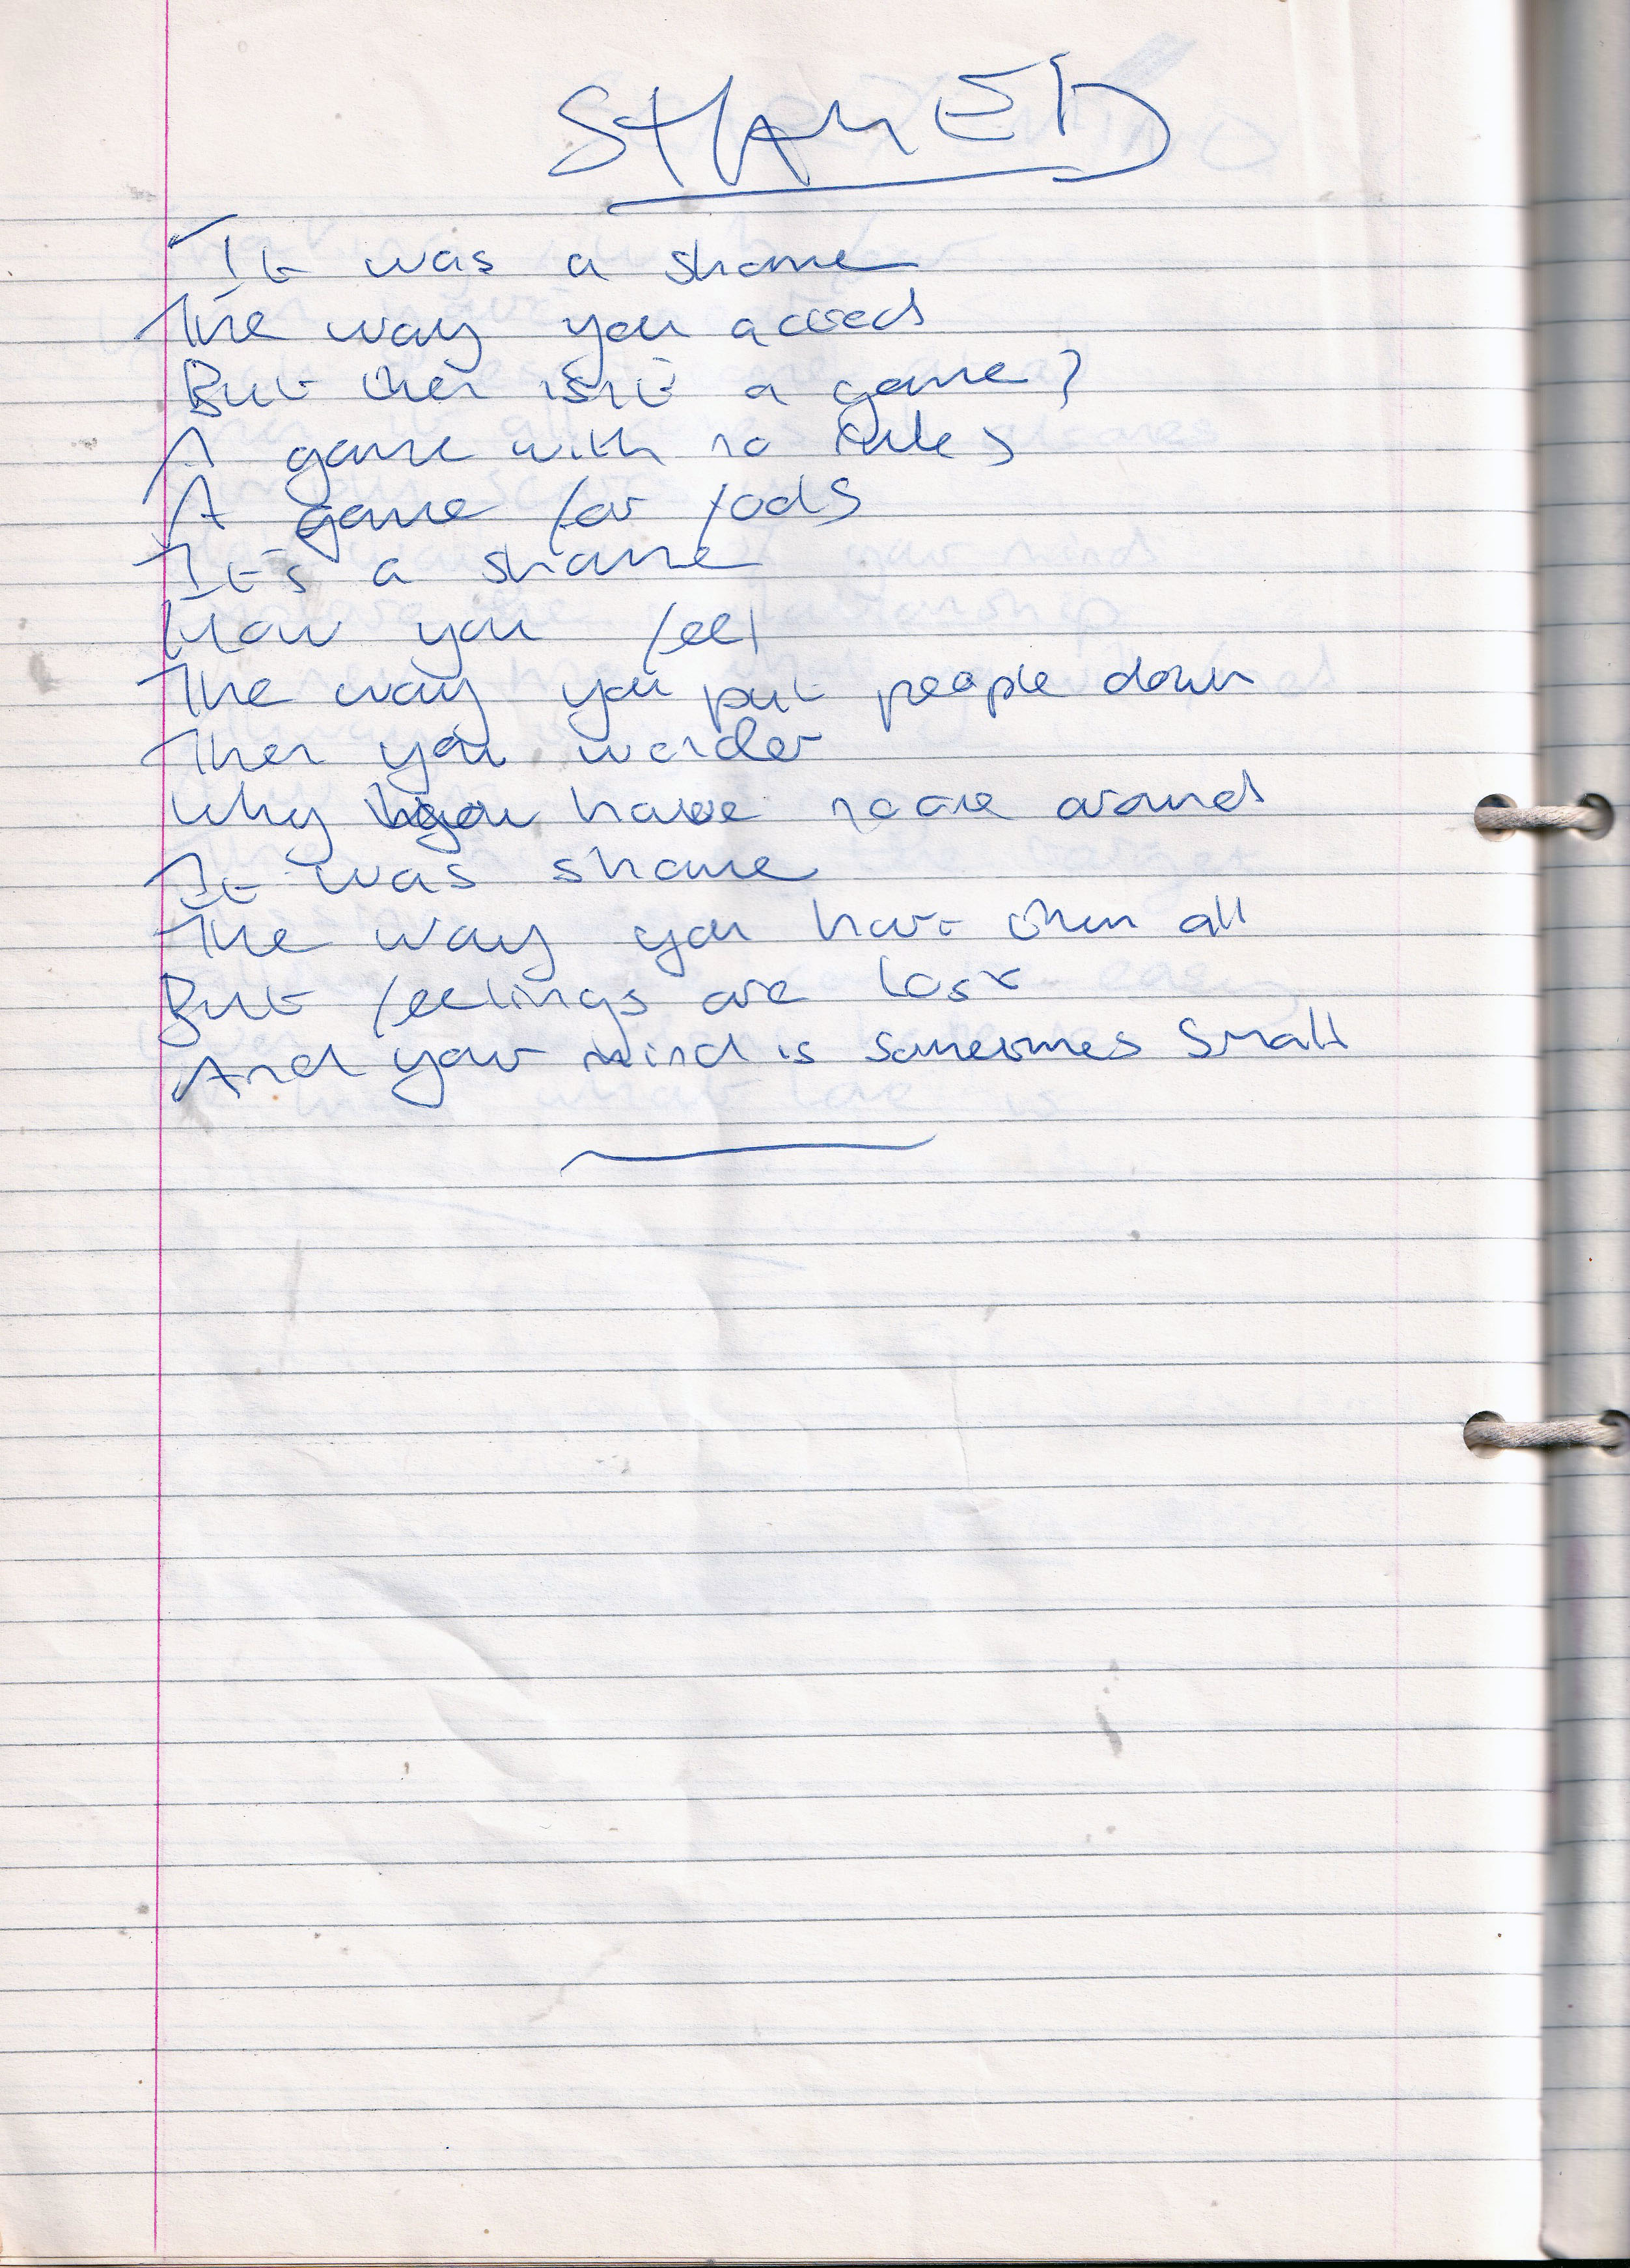 SHAMED
It was a shame
The way you acted
But then isn't a game?
A game with no rules
A game for fools
It's a shame
How you feel
The way you put people down
Then you wonder
Why you have noone around
It was shame
The way you hurt them all
But feelings are lost
And your mind is sometimes small